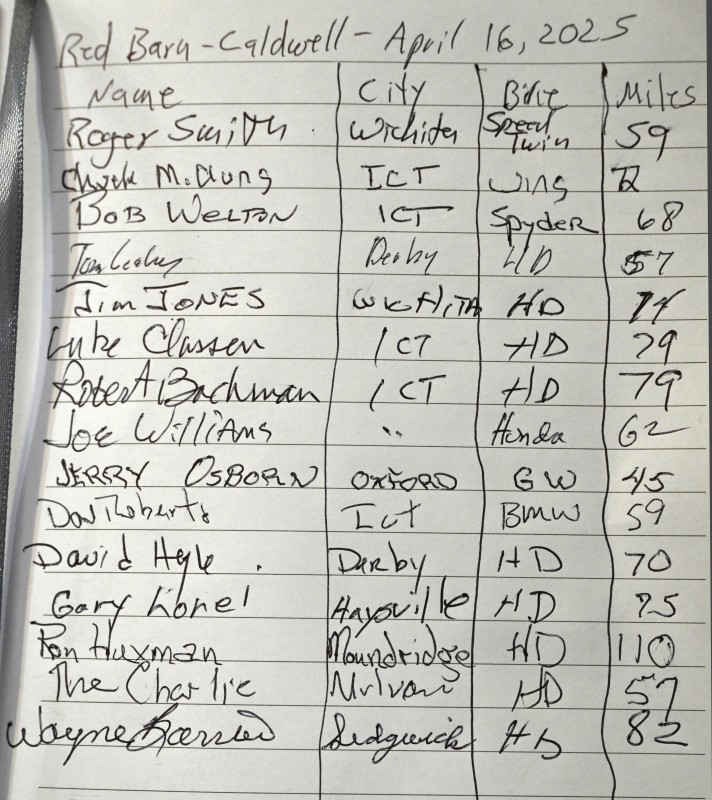 Red Barn - Caldwell - April 16, 2025
Name City Bike Miles
Roger Smith Wichita Speed Twin 59
Chuck McClung ICT Wing 72
BOB WELTON ICT SpydER 68
Tom Leahy Derby HD 57
Jim JONES WICHITA HD 74
Luke Classen ICT HD 79
Robert Bachman ICT HD 79
JOE WilliAms " Honda 62
JERRY OSBORN OXFORD GW 45
Roberts Ict BMW 59
David Hyle Derby HD 70
Gary Haysville HD 75
Ron Huxman Moundridge HD 110
The Charlie Mulvane HD 57
Wayne Sedgwick HD 82